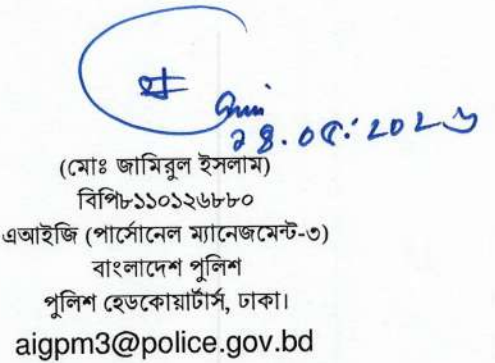 ২৪.০৫.২০২৩
(মোঃ জামিরুল ইসলাম)
বিপি৮১১০১২৬৮৮০
এআইজি (পার্সোনেল ম্যানেজমেন্ট-৩)
বাংলাদেশ পুলিশ
পুলিশ হেডকোয়ার্টার্স, ঢাকা।
aigpm3@police.gov.bd